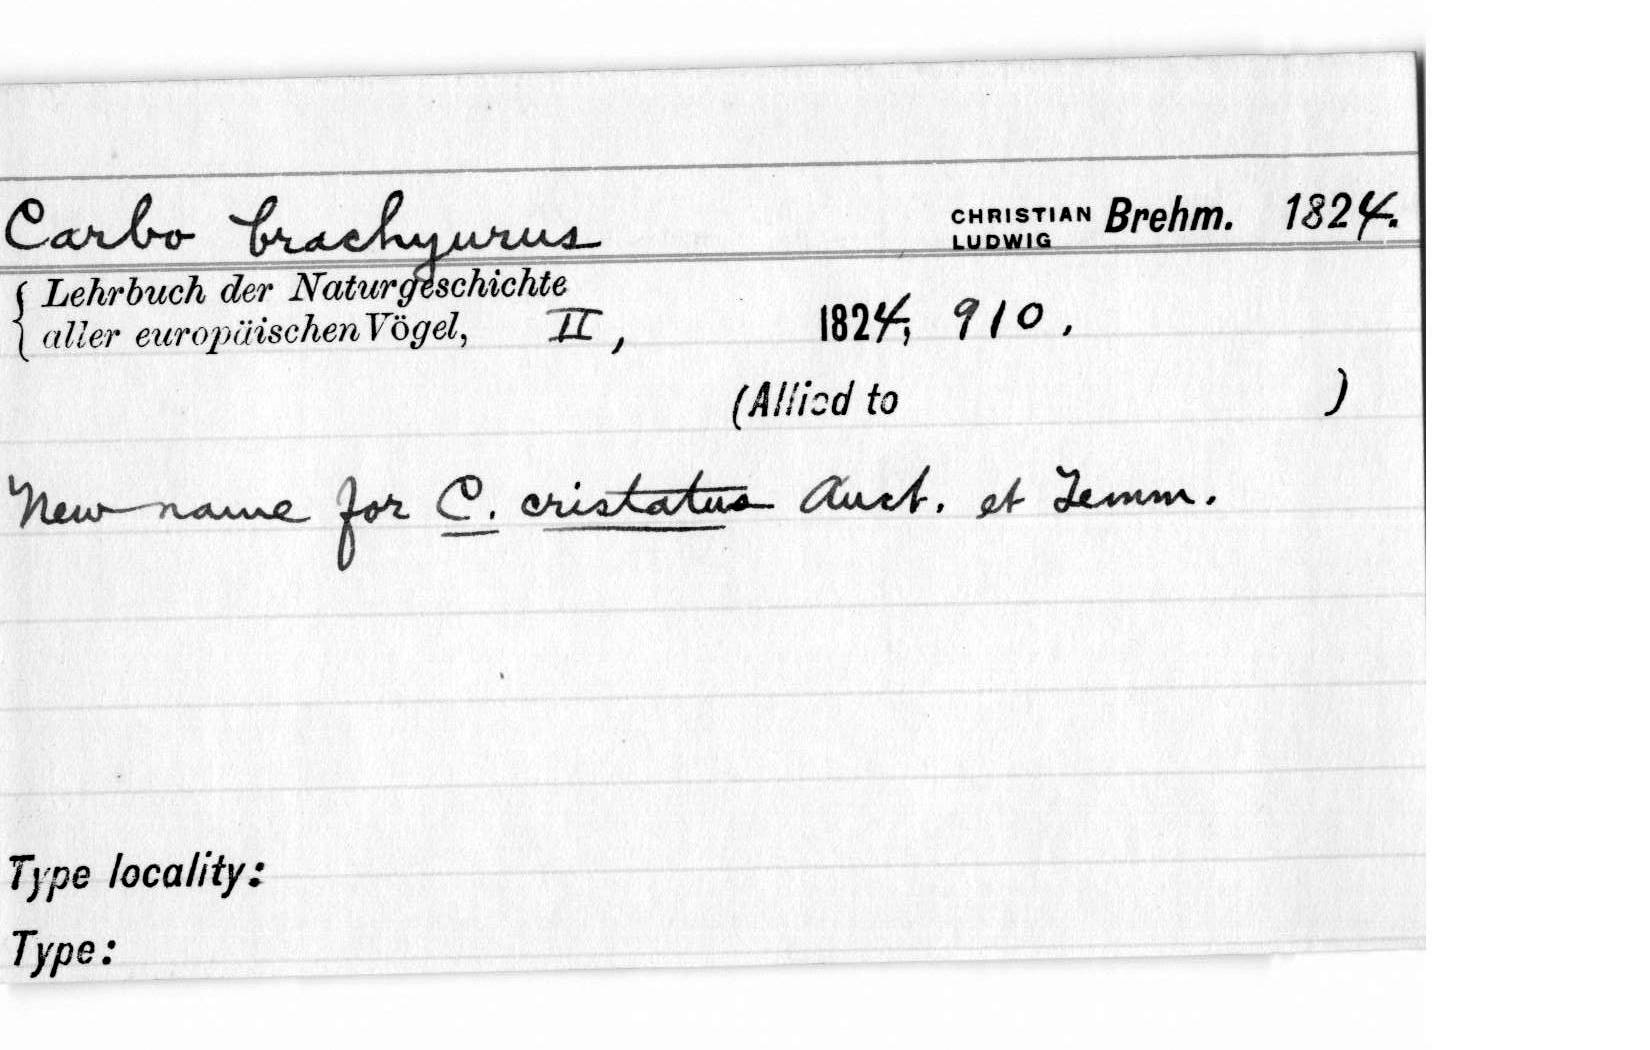 Carbo brachyurus CHRISTIAN LUDWIG Brehm. 1824.
{ Lehrbuch der Naturgeschichte
aller europäischen Vögel, II, 1824, 910.
(Allied to )
New name for C. cristatus Auct. et Temm.
Type locality:
Type: